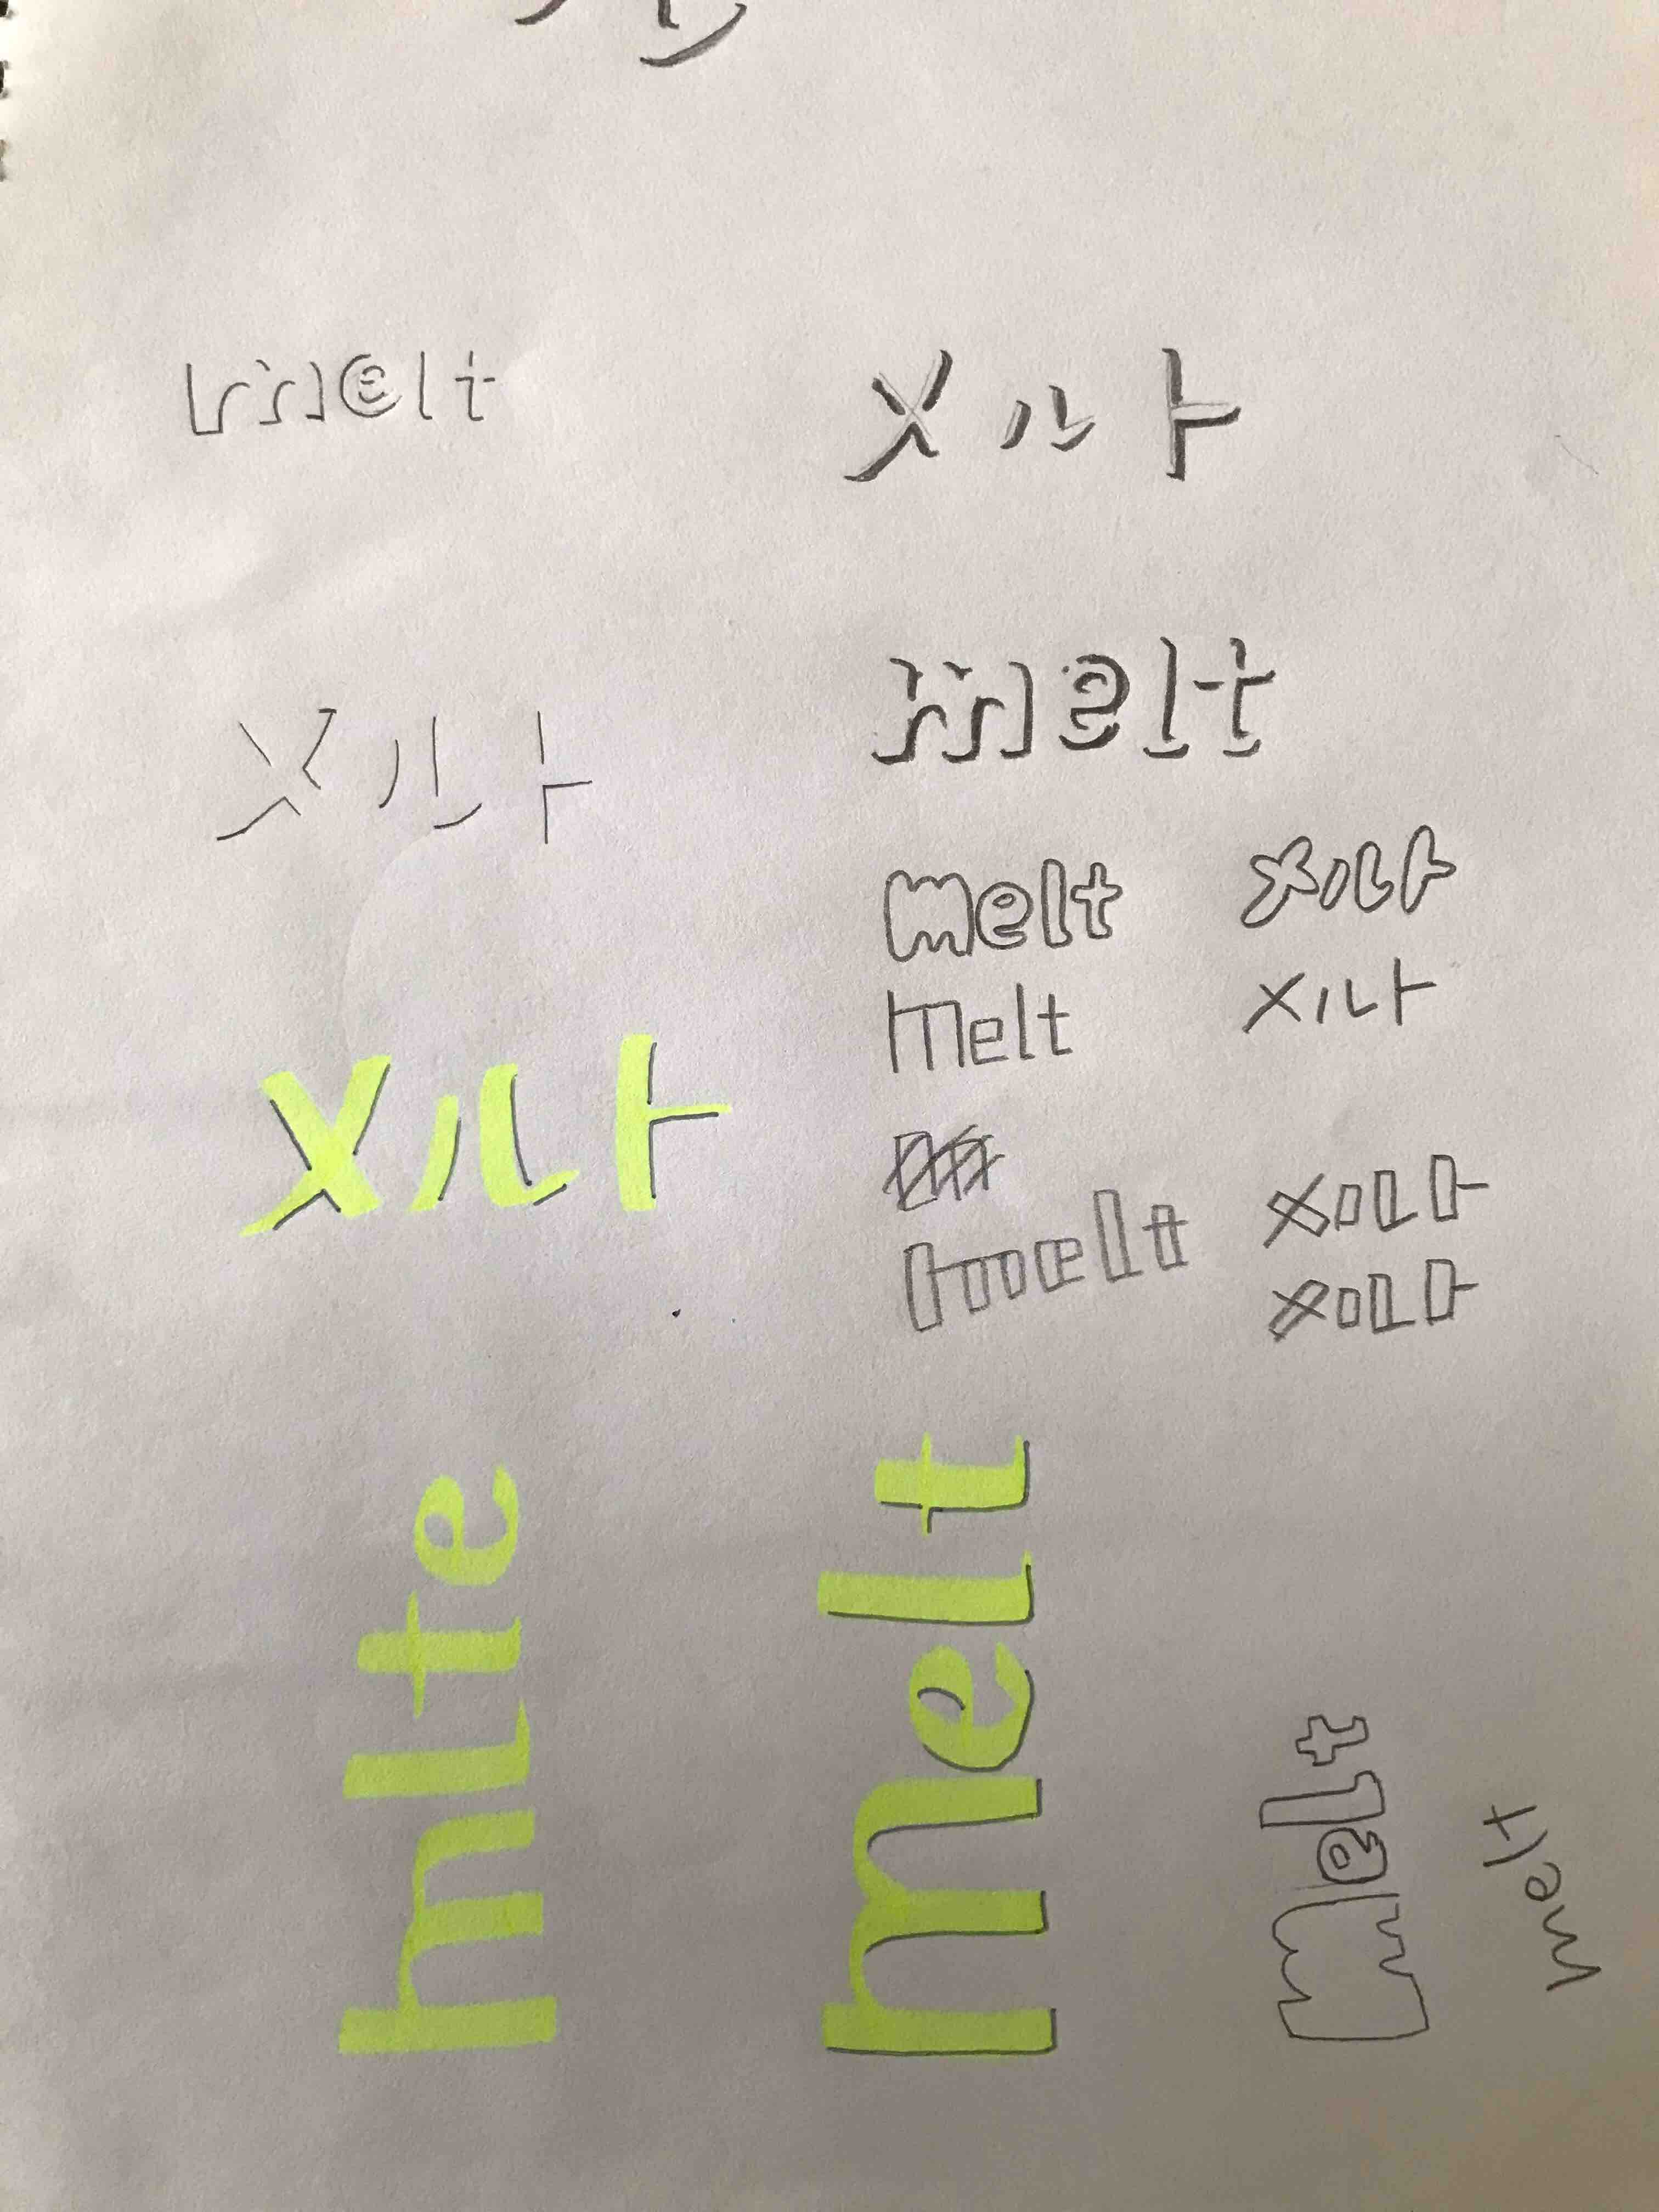 melt
メルト
メルト
melt
melt
メルト
melt
メルト
メルト
melt
メルト
メルト
mlte
melt
melt
melt